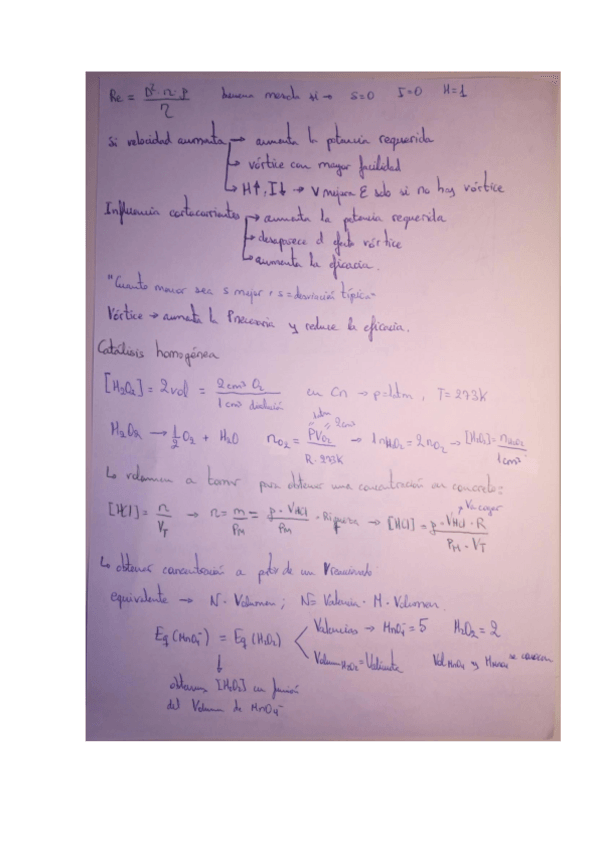 Re = D²·n·ρ / η buena mezcla si → s=0 I=0 H=1
Si velocidad aumenta → aumenta la potencia requerida
↳ vórtice con mayor facilidad
↳ H↑, I↓ → V mejora E solo si no hay vórtice
Influencia cortacorrientes → aumenta la potencia requerida
↳ desaparece el efecto vórtice
↳ aumenta la eficacia.
"Cuanto menor sea s mejor, s = desviación típica"
Vórtice → aumenta la Pnecesaria y reduce la eficacia.
Catálisis homogénea
[H₂O₂] = 2 vol = 2cm³ O₂ / 1 cm³ disolución en Cn → p=1atm, T=273K
H₂O₂ → ½ O₂ + H₂O nO₂ = PVO₂ / R·273K → 1 nH₂O₂ = 2 nO₂ → [H₂O₂] = nH₂O₂ / 1cm³
1atm = 2cm³
↳ volumen a tomar para obtener una concentración en concreto:
[HCl] = n / VT → n = m / PM = ρ·VHCl / PM · Riqueza → [HCl] = ρ·VHCl·R / PM·VT
↳ obtener concentración a partir de un Vreaccionado
equivalente → N·Volumen; N= Valencia·M·Volumen
Eq (MnO₄⁻) = Eq (H₂O₂) Valencias → MnO₄⁻=5 H₂O₂=2
VolumenH₂O₂ = Valicuota VolMnO₄ y MMnO₄ se conocen
↓
obtenemos [H₂O₂] en función
del Volumen de MnO₄⁻